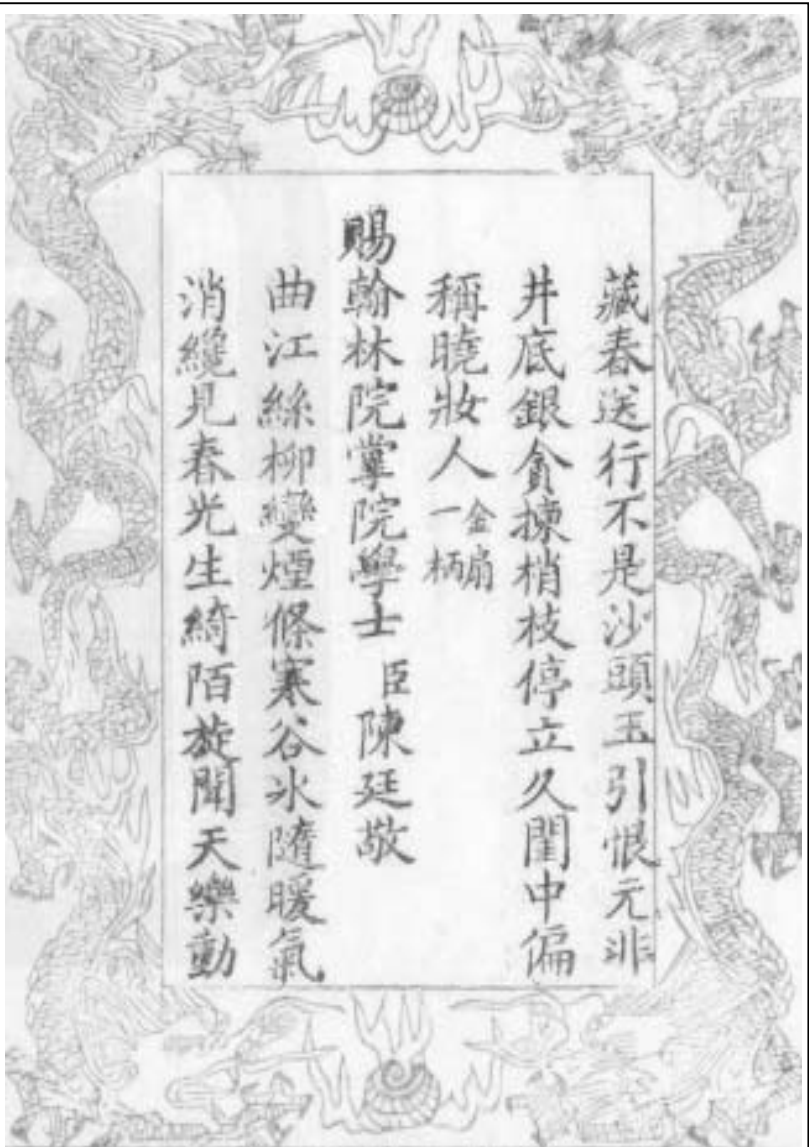 藏春送行不是沙頭玉引恨元非
井底銀貪揀梢枝停立久閨中偏
稱曉妝人金扇一柄
賜翰林院掌院學士臣陳廷敬
曲江絲柳變煙條寒谷氷隨暖氣
消纔見春光生綺陌旋聞天樂動